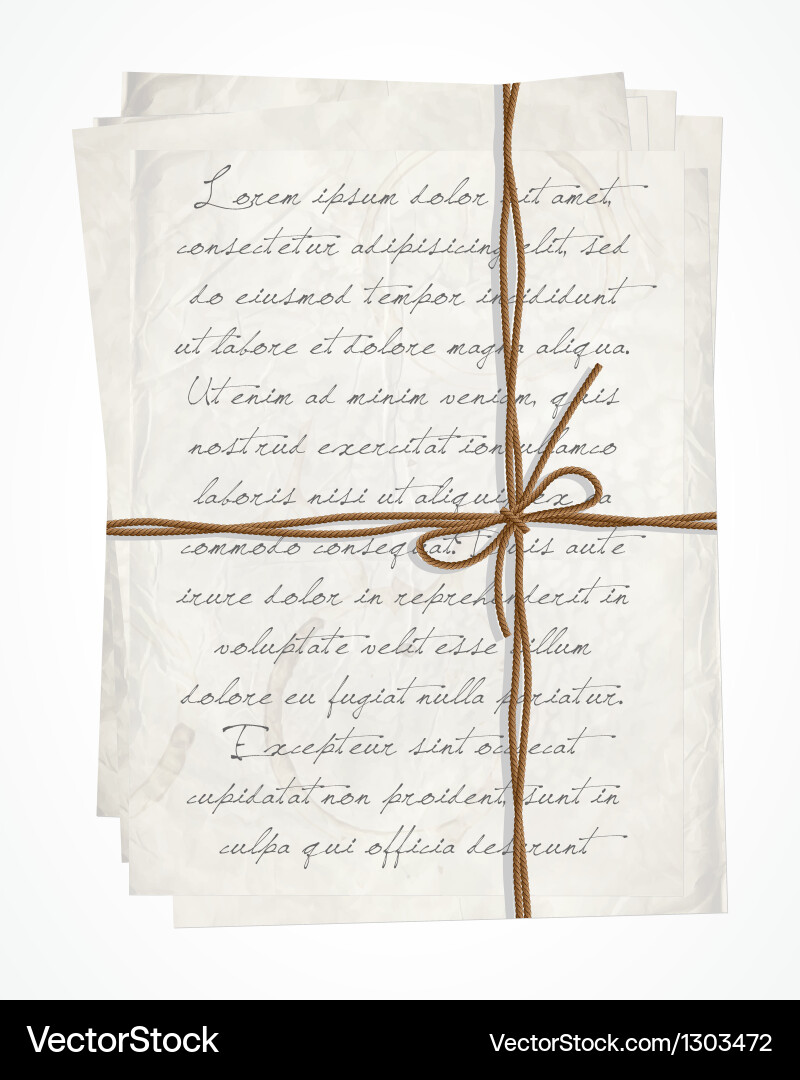 Lorem ipsum dolor sit amet,
consectetur adipisicing elit, sed
do eiusmod tempor incididunt
ut labore et dolore magna aliqua.
Ut enim ad minim veniam, quis
nostrud exercitation ullamco
laboris nisi ut aliquip ex ea
commodo consequat. Duis aute
irure dolor in reprehenderit in
voluptate velit esse cillum
dolore eu fugiat nulla pariatur.
Excepteur sint occecat
cupidatat non proident, sunt in
culpa qui officia deserunt
VectorStock
VectorStock.com/1303472